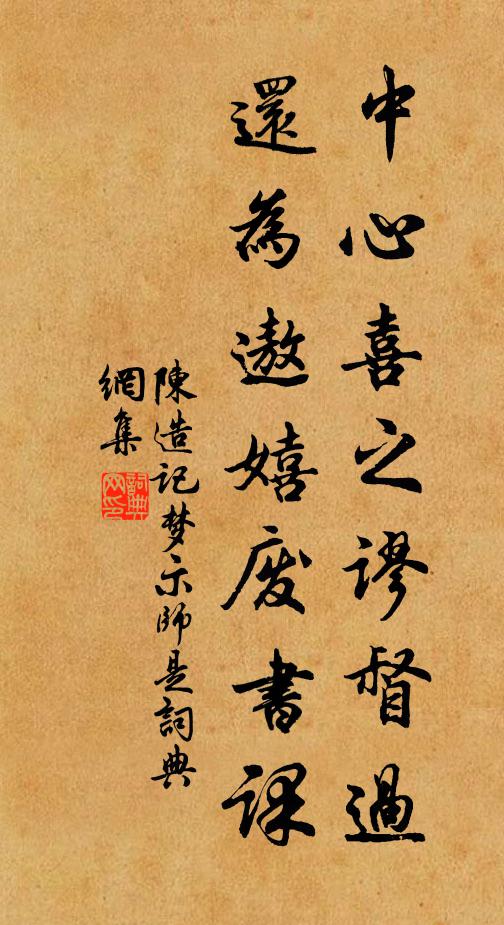 中心喜之謬督過
還為遨嬉废書課
陳造记梦示師是詞典
網集
詞典网印